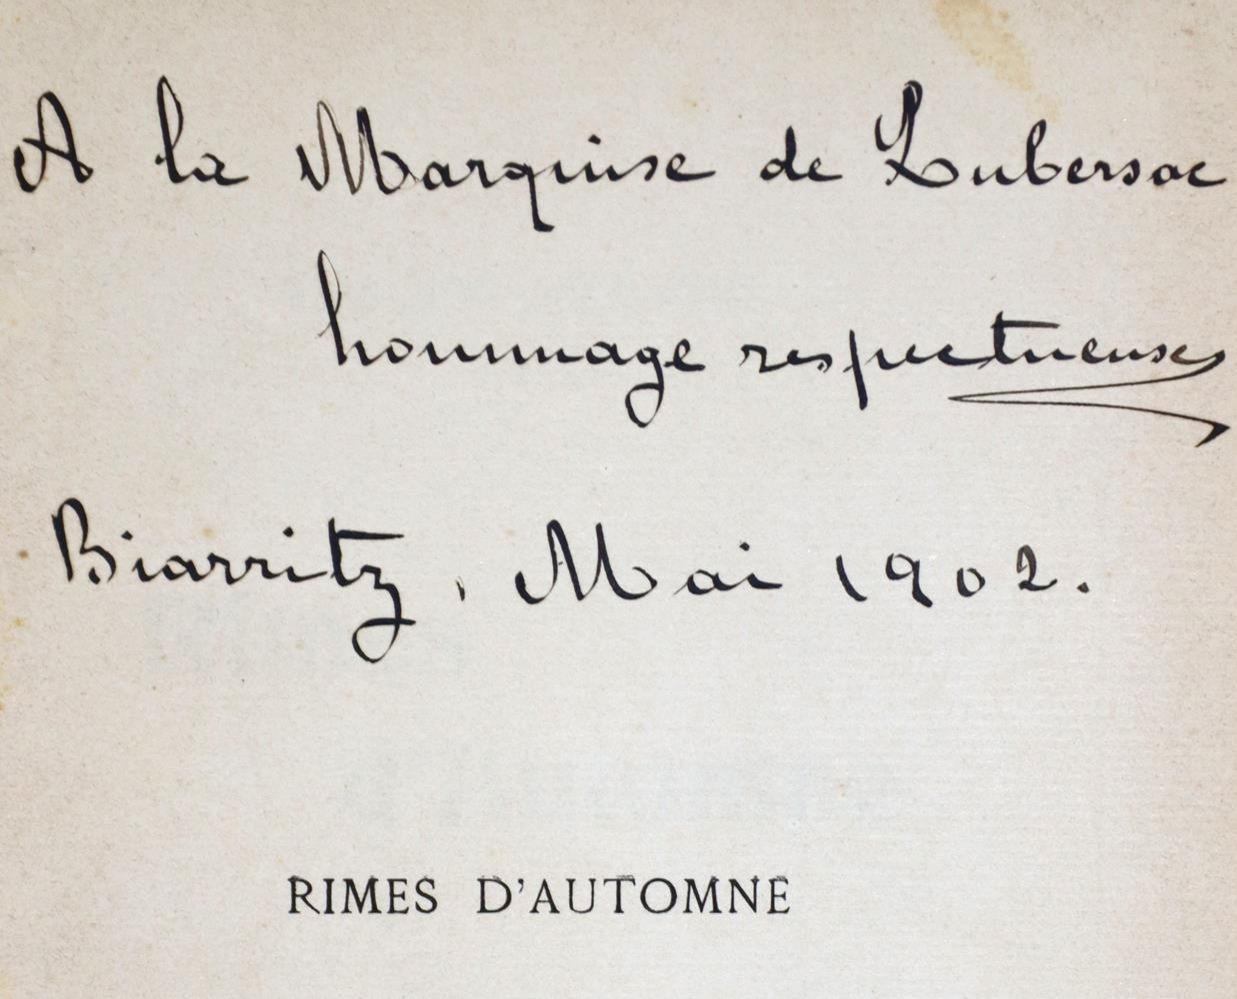 A la Marquise de Lubersac
hommage respectueuses
Biarritz, Mai 1902.
RIMES D'AUTOMNE